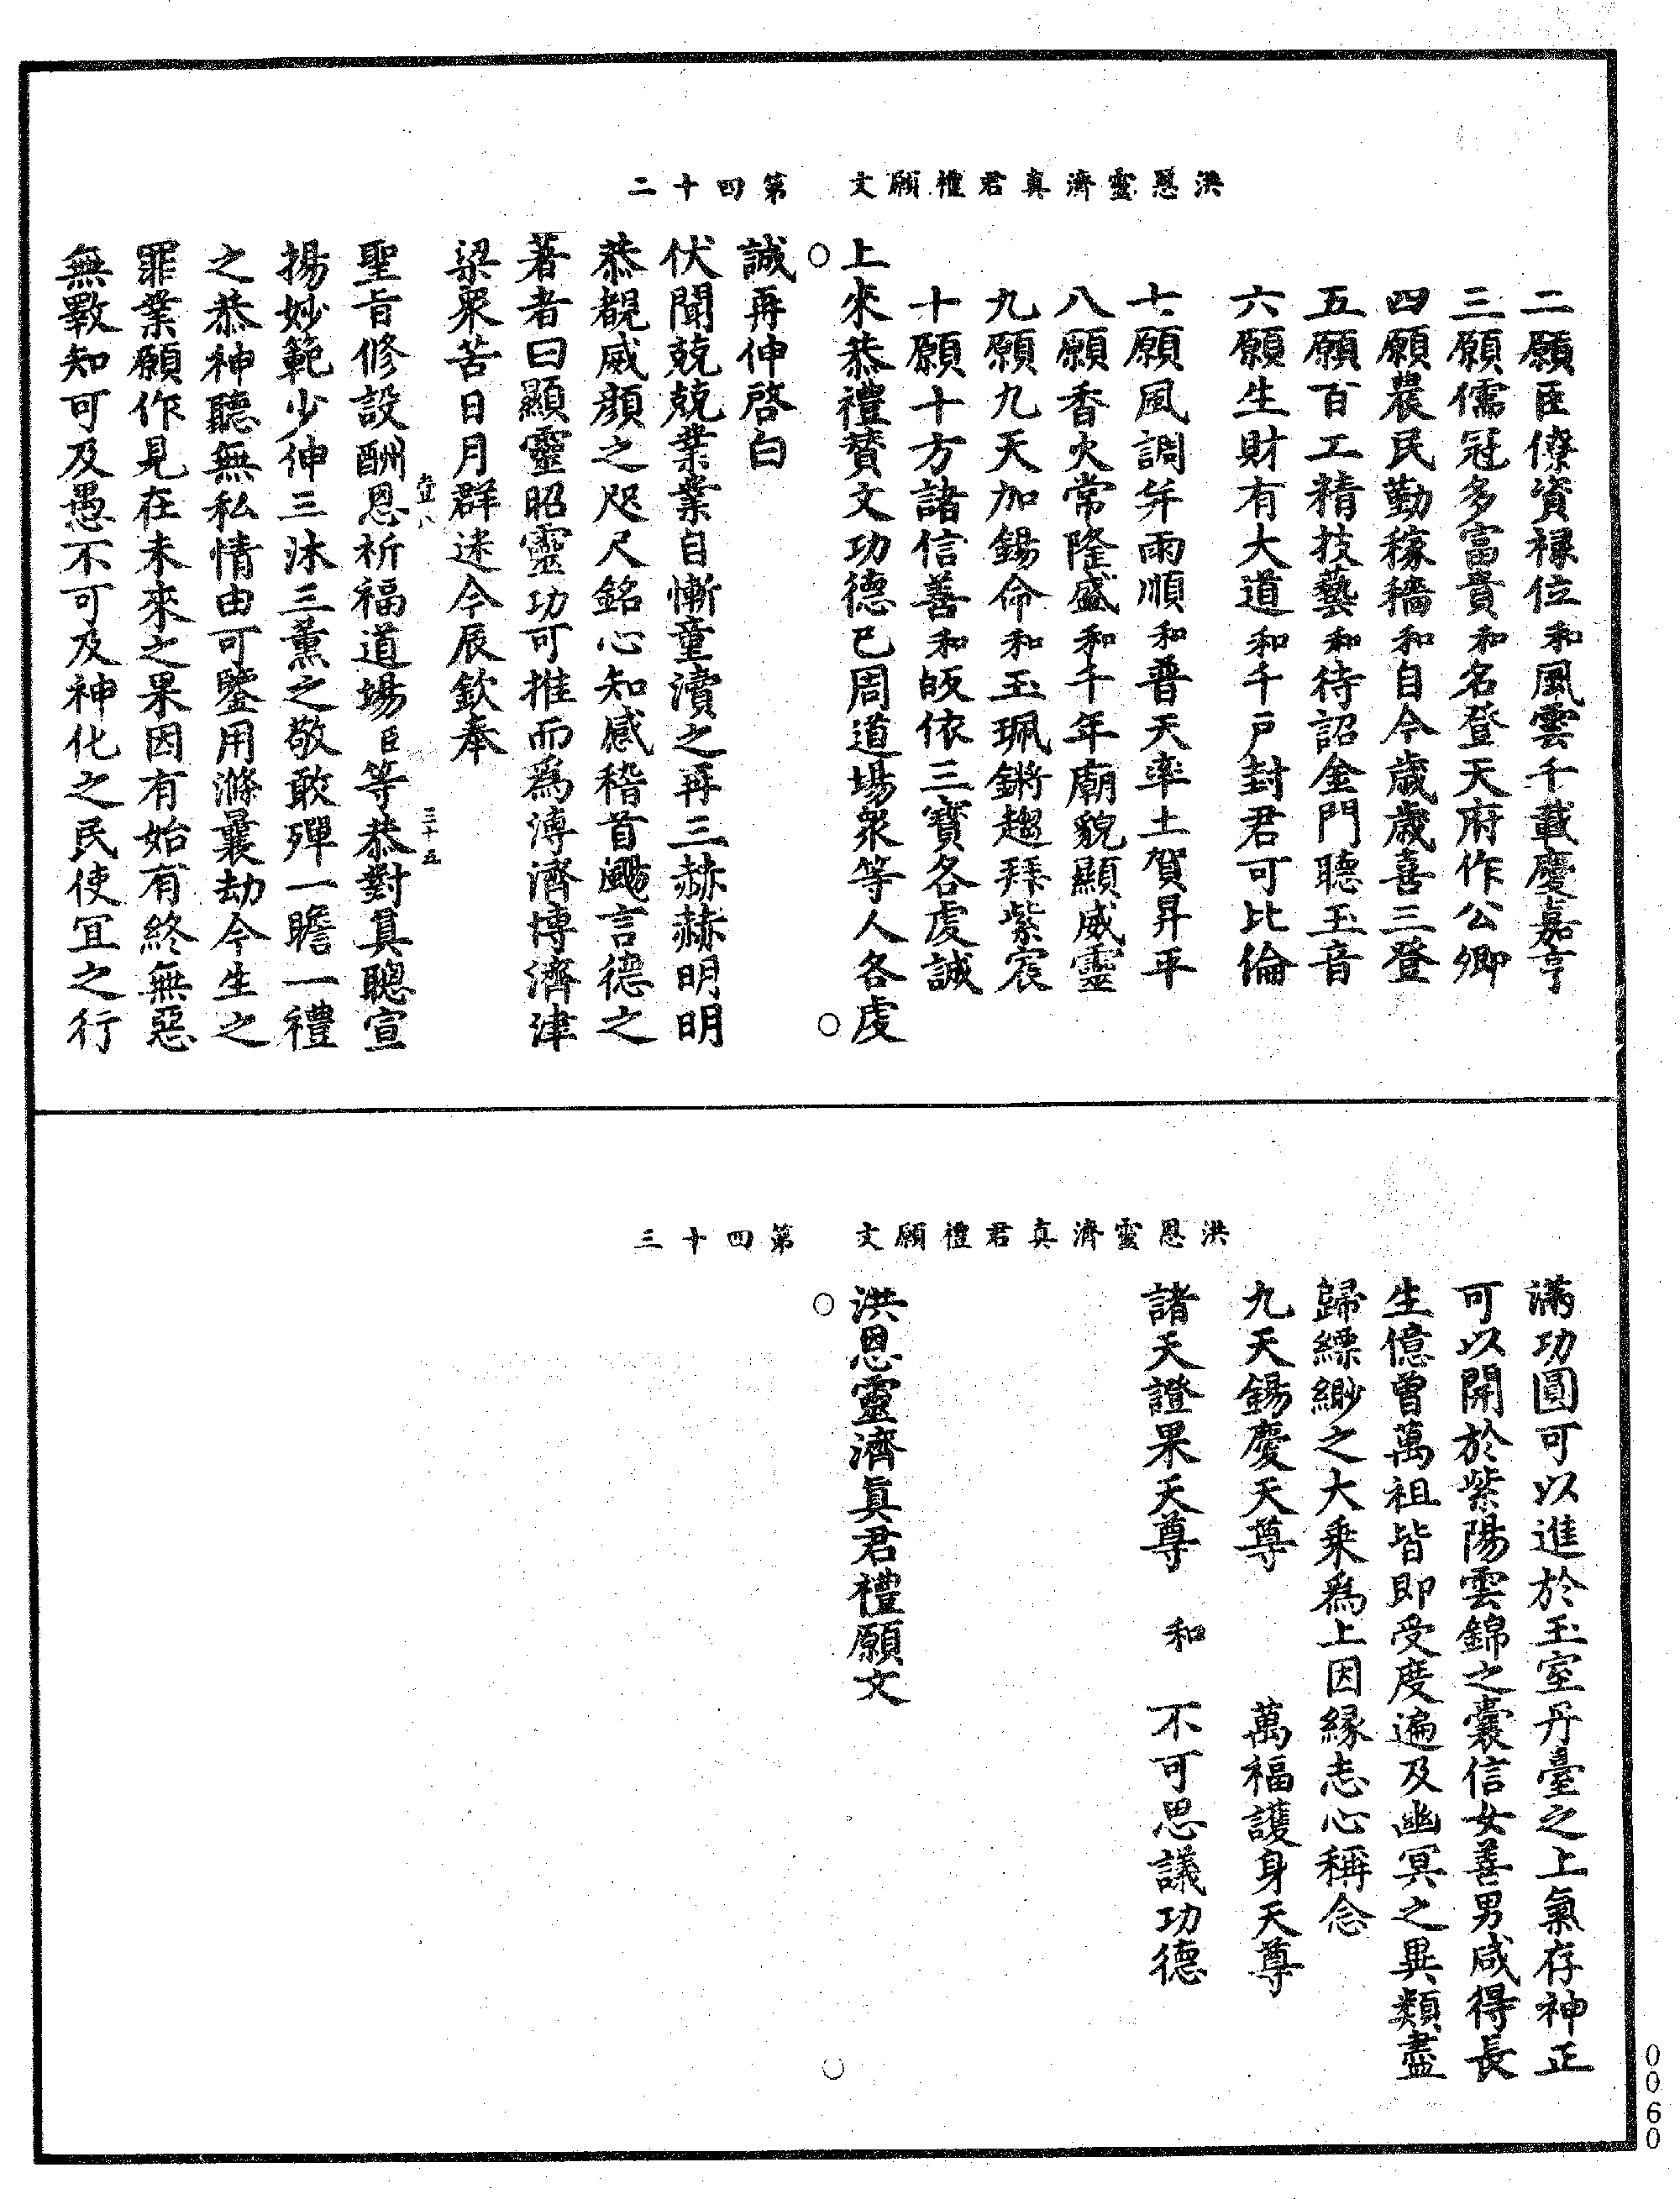 洪恩靈濟真君禮願文　第四十二
二願臣僚資祿位和風雲千載慶嘉亨
三願儒冠多富貴和名登天府作公卿
四願農民勤稼穡和自今歲歲喜三登
五願百工精技藝和待詔金門聽玉音
六願生財有大道和千戶封君可比倫
七願風調并雨順和普天率土賀昇平
八願香火常隆盛和千年廟貌顯威靈
九願九天加錫命和玉珮鏘趨拜紫宸
十願十方諸信善和皈依三寶各虔誠
上來恭禮贊文功德已周道場衆等人各虔
誠再伸啓白
伏聞兢兢業業自慚童瀆之再三赫赫明明
恭覩威顔之咫尺銘心知感稽首颺言德之
著者曰顯靈昭靈功可推而爲溥濟博濟津
梁衆苦日月群迷今辰欽奉
聖旨修設酬恩祈福道場臣等恭對具聰宣
三十五
揚妙範少伸三沐三薰之敬敢殫一瞻一禮
之恭神聽無私情由可鑒用滌曩劫今生之
罪業願作見在未來之果因有始有終無惡
無斁知可及愚不可及神化之民使宜之行
洪恩靈濟真君禮願文　第四十三
滿功圓可以進於玉室丹臺之上氣存神正
可以開於紫陽雲錦之囊信女善男咸得長
生億曾萬祖皆即受度遍及幽冥之異類盡
歸縹緲之大乘爲上因緣志心稱念
九天錫慶天尊　萬福護身天尊
諸天證果天尊　和　不可思議功德
洪恩靈濟眞君禮願文
0060